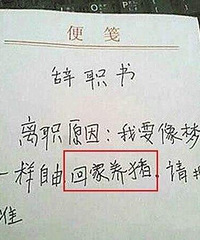 便笺
辞职书
离职原因:我要像梦
一样自由回家养猪,请批
准